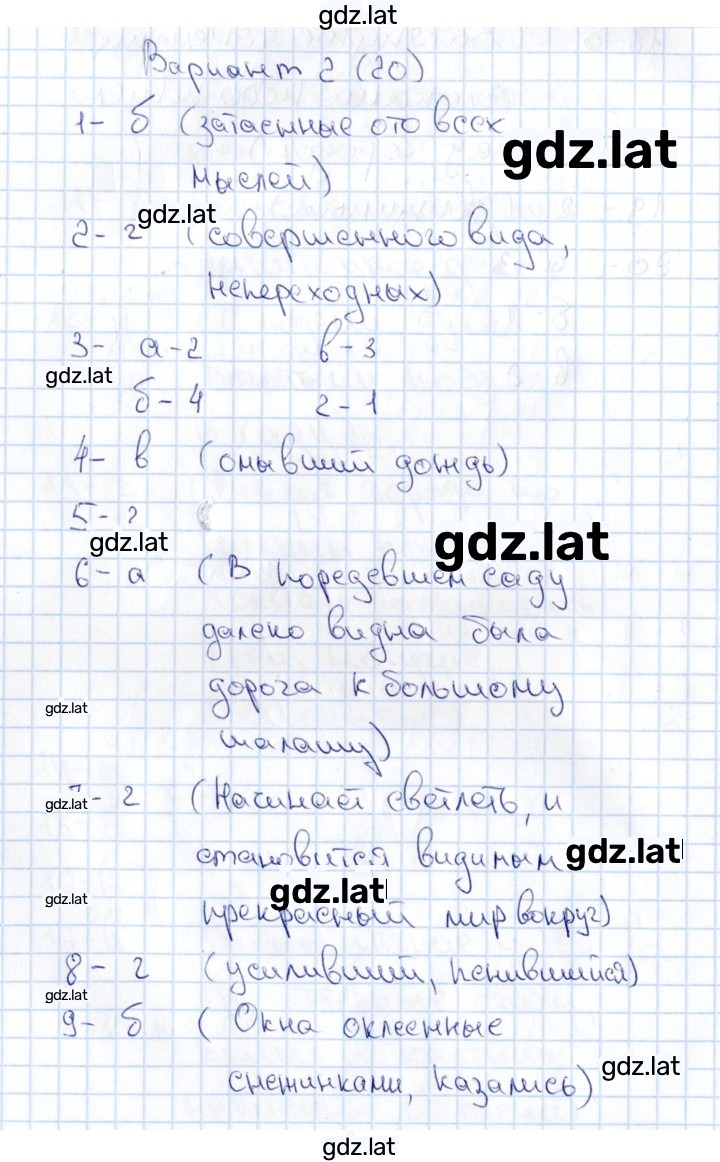 gdz.lat
Вариант 2 (20)
1- б (затаенные ото всех
gdz.lat
мыслей)
gdz.lat
2- г (совершенного вида,
непереходных)
3- а-2 в-3
gdz.lat
б-4 г-1
4- в (омывший дождь)
5-
gdz.lat
gdz.lat
6-а (В поредевшем саду
далеко видна была
дорога к большому
gdz.lat
шалашу)
7- г (Начинает светлеть, и
gdz.lat
становится видимым
gdz.lat
gdz.lat
gdz.lat
прекрасный мир вокруг)
8- г (усиливший, пенившийся)
gdz.lat
9- б (Окна оклеенные
gdz.lat
снежинками, казались)
gdz.lat